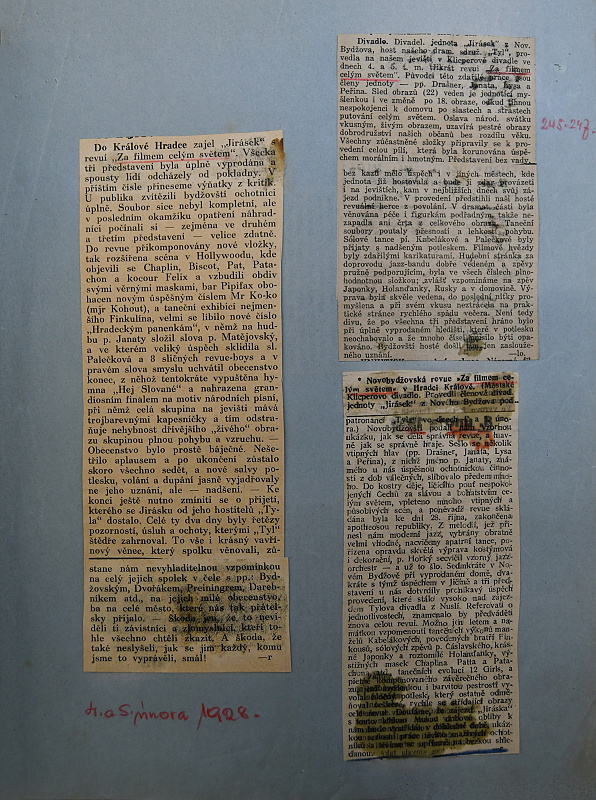 Do Králové Hradce zajel „Jirásek“ s
revuí „Za filmem celým světem“. Všecka
tři představení byla úplně vyprodána a
spousty lidí odcházely od pokladny. V
příštím čísle přineseme výňatky z kritik.
U publika zvítězili bydžovští ochotníci
úplně. Soubor sice nebyl kompletní, ale
v posledním okamžiku opatření náhrad-
níci počínali si — zejména ve druhém
a třetím představení — velice zdatně.
Do revue přikomponovány nové vložky,
tak rozšířena scéna v Hollywoodu, kde
objevili se Chaplin, Biscot, Pat, Pata-
chon a kocour Felix a vzbudili obdiv
svými věrnými maskami, bar Pipifax obo-
hacen novým úspěšným číslem Mr Ko-ko
(mjr Kohout), a taneční exhibicí nejmen-
šího Finkulína, velmi se líbilo nové číslo
„Hradeckým panenkám“, v němž na hud-
bu p. Janaty složil slova p. Matějovský,
a ve kterém veliký úspěch sklidila sl.
Palečková a 8 sličných revue-boys a v
pravém slova smyslu uchvátil obecenstvo
konec, z něhož tentokráte vypuštěna hy-
mna „Hej Slované“ a nahrazena gran-
diosním finalem na motiv národních písní,
při němž celá skupina na jevišti mává
trojbarevnými kapesníčky a tím odstra-
ňuje nehybnost dřívějšího „živého“ obra-
zu skupinou plnou pohybu a vzruchu. —
Obecenstvo bylo prostě báječné. Neše-
třilo aplausem a po ukončení zůstalo
skoro všechno sedět, a nové salvy po-
tlesku, volání a dupání jasně vyjadřovaly
ne jeho uznání, ale — nadšení. — Ke
konci ještě nutno zmíniti se o přijetí,
kterého se Jirásku od jeho hostitelů „Ty-
la“ dostalo. Celé ty dva dny byly řetězy
pozorností, úsluh a ochoty, kterými „Tyl“
štědře zahrnoval. To vše i krásný vavří-
nový věnec, který spolku věnovali, zů-
stane nám nevyhladitelnou vzpomínkou
na celý jejich spolek v čele s pp.: Byd-
žovským, Dvořákem, Preiningrem, Dareb-
níkem atd., na jejich milé obecenstvo,
ba na celé město, které nás tak přátel-
sky přijalo. — Škoda jen, že to nevi-
děli ti závistníci a zlomyslníci, kteří to-
hle všechno chtěli zkazit. A škoda, že
také neslyšeli, jak se jim každý, komu
jsme to vyprávěli, smál! —r
4. a 5. února 1928.
Divadlo. Divadel. jednota „Jirásek“ z Nov.
Bydžova, host našeho dram. sdruž. „Tyl“, pro-
vedla na našem jevišti v Klicperově divadle ve
dnech 4. a 5. t. m. třikrát revui „Za filmem
celým světem“. Původci této zdařilé práce jsou
členy jednoty — pp. Drašner, Janata, Lysa a
Peřina. Sled obrazů (22) veden je jednotící my-
šlenkou i ve změně po 18. obraze, odkud tihnou
nespokojenci k domovu po slastech a strastech
putování celým světem. Oslava národ. svátku
vkusným, živým obrazem, uzavírá pestré obrazy
dobrodružství našich občanů bez rozdílu věku.
Všechny zúčastněné složky připravily se k pro-
vedení celou pílí, která byla korunována úspě-
chem morálním i hmotným. Představení bez vady,
bez kazů mělo úspěch i v jiných městech, kde
jednota již hostovala a bude ji
i na jevištích, kam v nejbližších dnech svůj zá-
jezd podnikne. V provedení předstihli naši hosté
revuální herce z povolání. V dramat. části byla
věnována péče i figurkám podřadným, takže ne-
zapadla ani črta z celkového obrazu. Taneční
soubory poutaly přesností a lehkostí pohybu.
Sólové tance pí. Kabelákové a Palečkové byly
přijaty s nadšeným potleskem. Filmové hvězdy
byly zdařilými karikaturami. Hudební stránka za
doprovodu jazz-bandu dobře vedeném a zpěvy
pružně podporujícím, byla ve všech číslech plno-
hodnotnou složkou; zvlášť vzpomínáme na zpěv
Japonky, Holanďanky, Rusky a v domovině. Vý-
prava byla skvěle vedena, do poslední nitky pro-
myšlena a při svém vkusu neztrácela na prak-
tické stránce rychlého spádu večera. Není tedy
divu, že po všechna tři představení hráno bylo
při úplně vyprodaném hledišti, které v potlesku
neochabovalo a že mnoho čísel musilo býti opa-
kováno. Bydžovští hosté došli u nás zaslouže-
ného uznání. —lo.
245-247.
* Novobydžovská revue »Za filmem ce-
lým světem« v Hradci Králové. (Městské
Klicperovo divadlo. Provedli členové divad.
jednoty „Jirásek“ z Nového Bydžova pod
patronancí
úno-
ra.) Novobydžovští podali nám vzornou
ukázku, jak se dělá správná revue, a hlav-
ně jak se správně hraje. Sešlo se několik
vtipných hlav (pp. Drašner, Janata, Lysa
a Peřina), z nichž jméno p. Janaty, zná-
mého u nás úspěšnou ochotnickou činno-
stí z dob válečných, slibovalo předem mno-
ho. Do kostry děje, líčícího pouť nespoko-
jených Čechů za slávou a bohatstvím ce-
lým světem, vpleteno mnoho vtipných a
působivých scén, a poněvadž revue sklá-
dána byla ke dni 28. října, zakončena
apotheosou republiky. Z melodií, jež při-
nesl nám moderní jazz, vybrány obratně
velmi vhodné, nacvičeny apartní tance, po-
řízena opravdu skvělá výprava kostýmová
i dekorační, p. Horký secvičil vzorný jazz-
orchestr — a už to šlo. Sedmkráte v No-
vém Bydžově při vyprodaném domě, dva-
kráte s týmž úspěchem v Jičíně a tři před-
stavení u nás dotvrdily pronikavý úspěch
provedení, které stálo vysoko nad zájez-
dem Tylova divadla z Nuslí. Referovati o
jednotlivostech, znamenalo by předváděti
znova celou revui. Možno jen letem a na-
mátkou vzpomenouti tanečních výkonů man-
želů Kabelákových, povedených bratří Fin-
kousů, sólových zpěvů p. Čáslavského, krás-
né Japonky a roztomilé Holanďanky, vý-
stižných masek Chaplina Patta a Pata-
chona, tanečních evolucí 12 Girls, a
závěrečného obrazu,
i barvitou pestrostí vy-
potlesk, který ostatně odmě-
rychle se střídající obrazy
„Jiráska“
obliby k
danou.